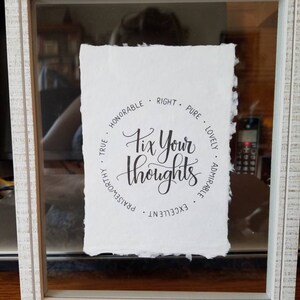 TRUE · HONORABLE · RIGHT · PURE · LOVELY · ADMIRABLE · EXCELLENT · PRAISEWORTHY ·
Fix Your
thoughts